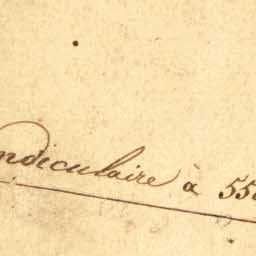 ndiculaire à 55